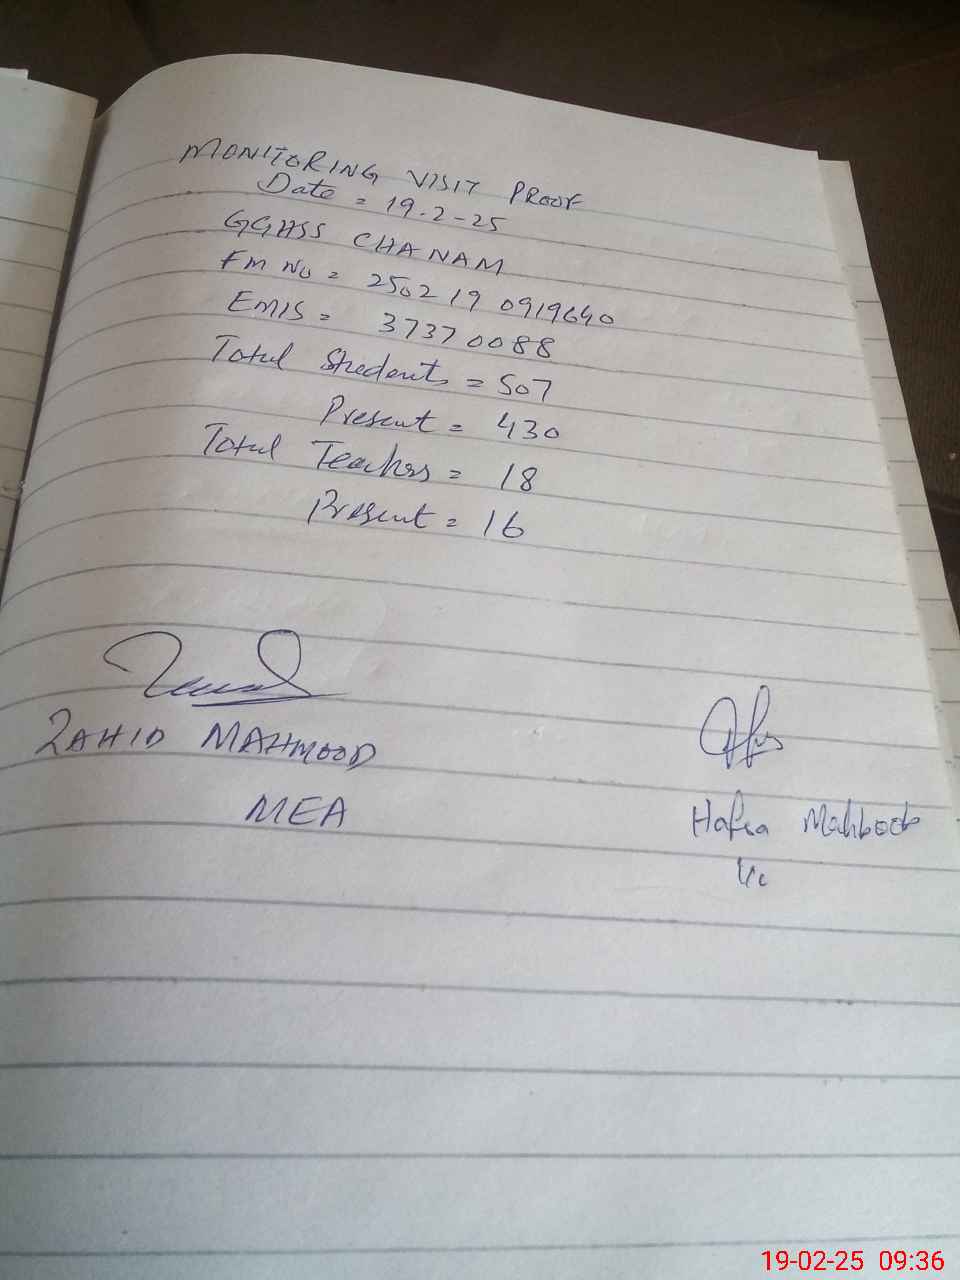 MONITORING VISIT PROOF
Date = 19-2-25
GGHSS CHANAM
Fm No = 250219 0919640
EMIS = 37370088
Total Students = 507
Present = 430
Total Teachers = 18
Present = 16
ZAHID MAHMOOD
MEA
Hafsa Mahboob
19-02-25 09:36